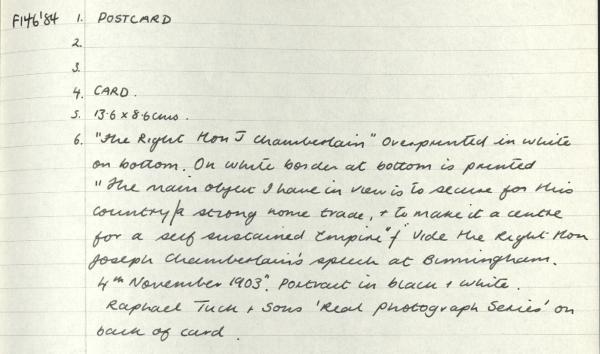 F146'84 1. POSTCARD
2.
3.
4. CARD.
5. 13.6 x 8.6cms.
6. "The Right Hon J Chamberlain" Overprinted in white
on bottom. On white border at bottom is printed
"The main object I have in view is to secure for this
country/a strong home trade, + to make it a centre
for a self sustained Empire"/ Vide the Right Hon
Joseph Chamberlain's speech at Birmingham.
4th November 1903". Portrait in black + white.
Raphael Tuck + Sons 'Real Photograph Series' on
back of card.